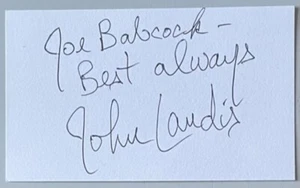 Joe Babcock -
Best always
John Landis